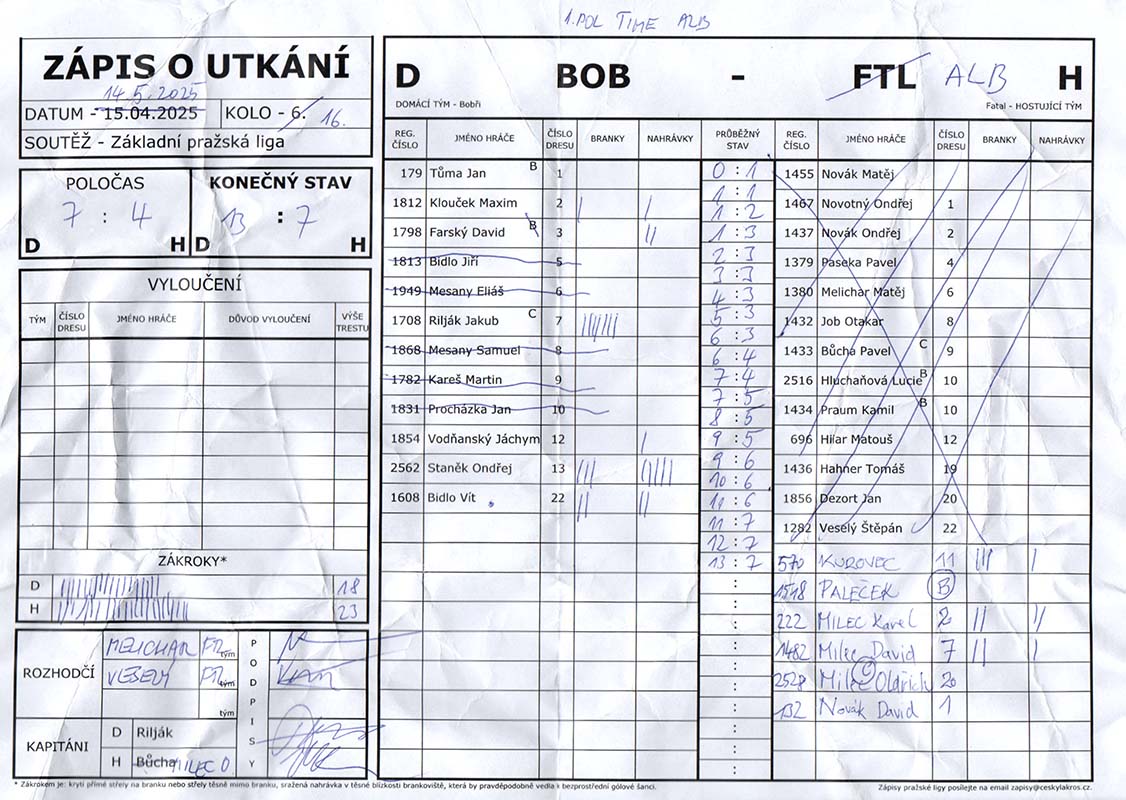 1. POL TIME ALB
ZÁPIS O UTKÁNÍ
14.5.2025
DATUM - 15.04.2025 KOLO - 6. 16.
SOUTĚŽ - Základní pražská liga
POLOČAS KONEČNÝ STAV
7 : 4 13 : 7
D H D H
VYLOUČENÍ
TÝM ČÍSLO DRESU JMÉNO HRÁČE DŮVOD VYLOUČENÍ VÝŠE TRESTU
ZÁKROKY*
D 18
H 23
ROZHODČÍ MELICHAR FTL tým
VESELÝ FTL tým
tým
PODPISY
KAPITÁNI D Rilják
H Bůcha MILEC O.
D BOB - FTL ALB H
DOMÁCÍ TÝM - Bobři Fatal - HOSTUJÍCÍ TÝM
REG. ČÍSLO JMÉNO HRÁČE ČÍSLO DRESU BRANKY NAHRÁVKY PRŮBĚŽNÝ STAV REG. ČÍSLO JMÉNO HRÁČE ČÍSLO DRESU BRANKY NAHRÁVKY
179 Tůma Jan B 1
1812 Klouček Maxim 2 | |
1798 Farský David B 3 ||
1813 Bidlo Jiří 5
1949 Mesany Eliáš 6
1708 Rilják Jakub C 7 |||||||
1868 Mesany Samuel 8
1782 Kareš Martin 9
1831 Procházka Jan 10
1854 Vodňanský Jáchym 12 |
2562 Staněk Ondřej 13 ||| |||||
1608 Bidlo Vít 22 || ||
0 : 1
1 : 1
1 : 2
1 : 3
2 : 3
3 : 3
4 : 3
5 : 3
6 : 3
6 : 4
7 : 4
7 : 5
8 : 5
9 : 5
9 : 6
10 : 6
11 : 6
11 : 7
12 : 7
13 : 7
1455 Novák Matěj
1467 Novotný Ondřej 1
1437 Novák Ondřej 2
1379 Paseka Pavel 4
1380 Melichar Matěj 6
1432 Job Otakar 8
1433 Bůcha Pavel C 9
2516 Hluchaňová Lucie B 10
1434 Praum Kamil B 10
696 Hilar Matouš 12
1436 Hahner Tomáš 19
1856 Dezort Jan 20
1282 Veselý Štěpán 22
570 KUROVEC 11 ||| |
1548 PALEČEK B
222 MILEC Karel 2 || ||
1482 Milec David 7 || |
2528 Milec Oldřich C 20
132 Novák David 1
* Zákrokem je: krytí přímé střely na branku nebo střely těsně mimo branku, sražená nahrávka v těsné blízkosti brankoviště, která by pravděpodobně vedla k bezprostřední gólové šanci.
Zápisy pražské ligy posílejte na email zapisy@ceskylakros.cz